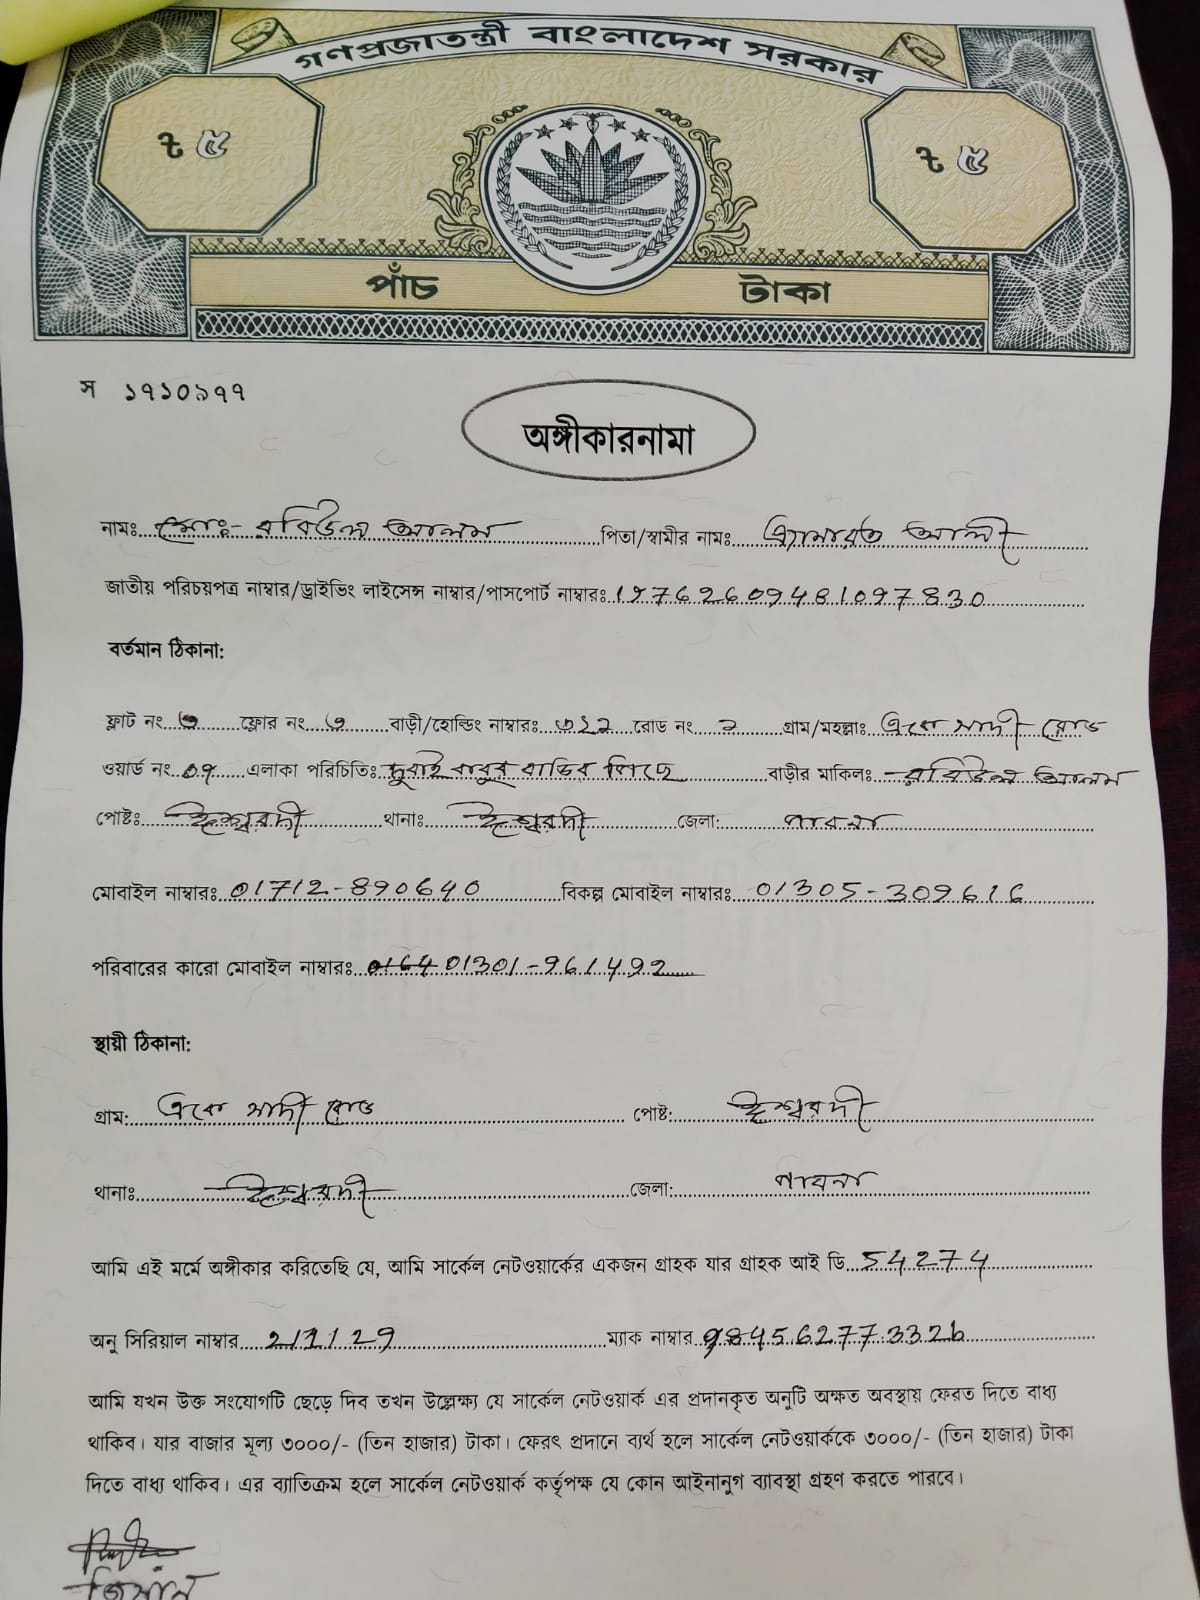 গণপ্রজাতন্ত্রী বাংলাদেশ সরকার
৳ ৫ ৳ ৫
পাঁচ টাকা
স ১৭১০৯৭৭
অঙ্গীকারনামা
নামঃ মোঃ- রবিউল আলম পিতা/স্বামীর নামঃ আলী
জাতীয় পরিচয়পত্র নাম্বার/ড্রাইভিং লাইসেন্স নাম্বার/পাসপোর্ট নাম্বারঃ
বর্তমান ঠিকানা:
ফ্লাট নং ফ্লোর নং ৩ বাড়ী/হোল্ডিং নাম্বারঃ ৩১২ রোড নং ২ গ্রাম/মহল্লাঃ রোড
ওয়ার্ড নং ০৭ এলাকা পরিচিতিঃ বাবুর বাড়ির পিছে বাড়ীর মাকিলঃ রবিউল আলম
পোষ্টঃ ঈশ্বরদী থানাঃ ঈশ্বরদী জেলা: পাবনা
মোবাইল নাম্বারঃ 01712-890640 বিকল্প মোবাইল নাম্বারঃ 01305-309616
পরিবারের কারো মোবাইল নাম্বারঃ 01301-961492
স্থায়ী ঠিকানা:
গ্রাম: রোড পোষ্ট: ঈশ্বরদী
থানাঃ ঈশ্বরদী জেলা: পাবনা
আমি এই মর্মে অঙ্গীকার করিতেছি যে, আমি সার্কেল নেটওয়ার্কের একজন গ্রাহক যার গ্রাহক আই ডি 54274
অনু সিরিয়াল নাম্বার ম্যাক নাম্বার
আমি যখন উক্ত সংযোগটি ছেড়ে দিব তখন উল্লেক্ষ্য যে সার্কেল নেটওয়ার্ক এর প্রদানকৃত অনুটি অক্ষত অবস্থায় ফেরত দিতে বাধ্য
থাকিব। যার বাজার মূল্য ৩০০০/- (তিন হাজার) টাকা। ফেরৎ প্রদানে ব্যর্থ হলে সার্কেল নেটওয়ার্ককে ৩০০০/- (তিন হাজার) টাকা
দিতে বাধ্য থাকিব। এর ব্যাতিক্রম হলে সার্কেল নেটওয়ার্ক কর্তৃপক্ষ যে কোন আইনানুগ ব্যাবস্থা গ্রহণ করতে পারবে।